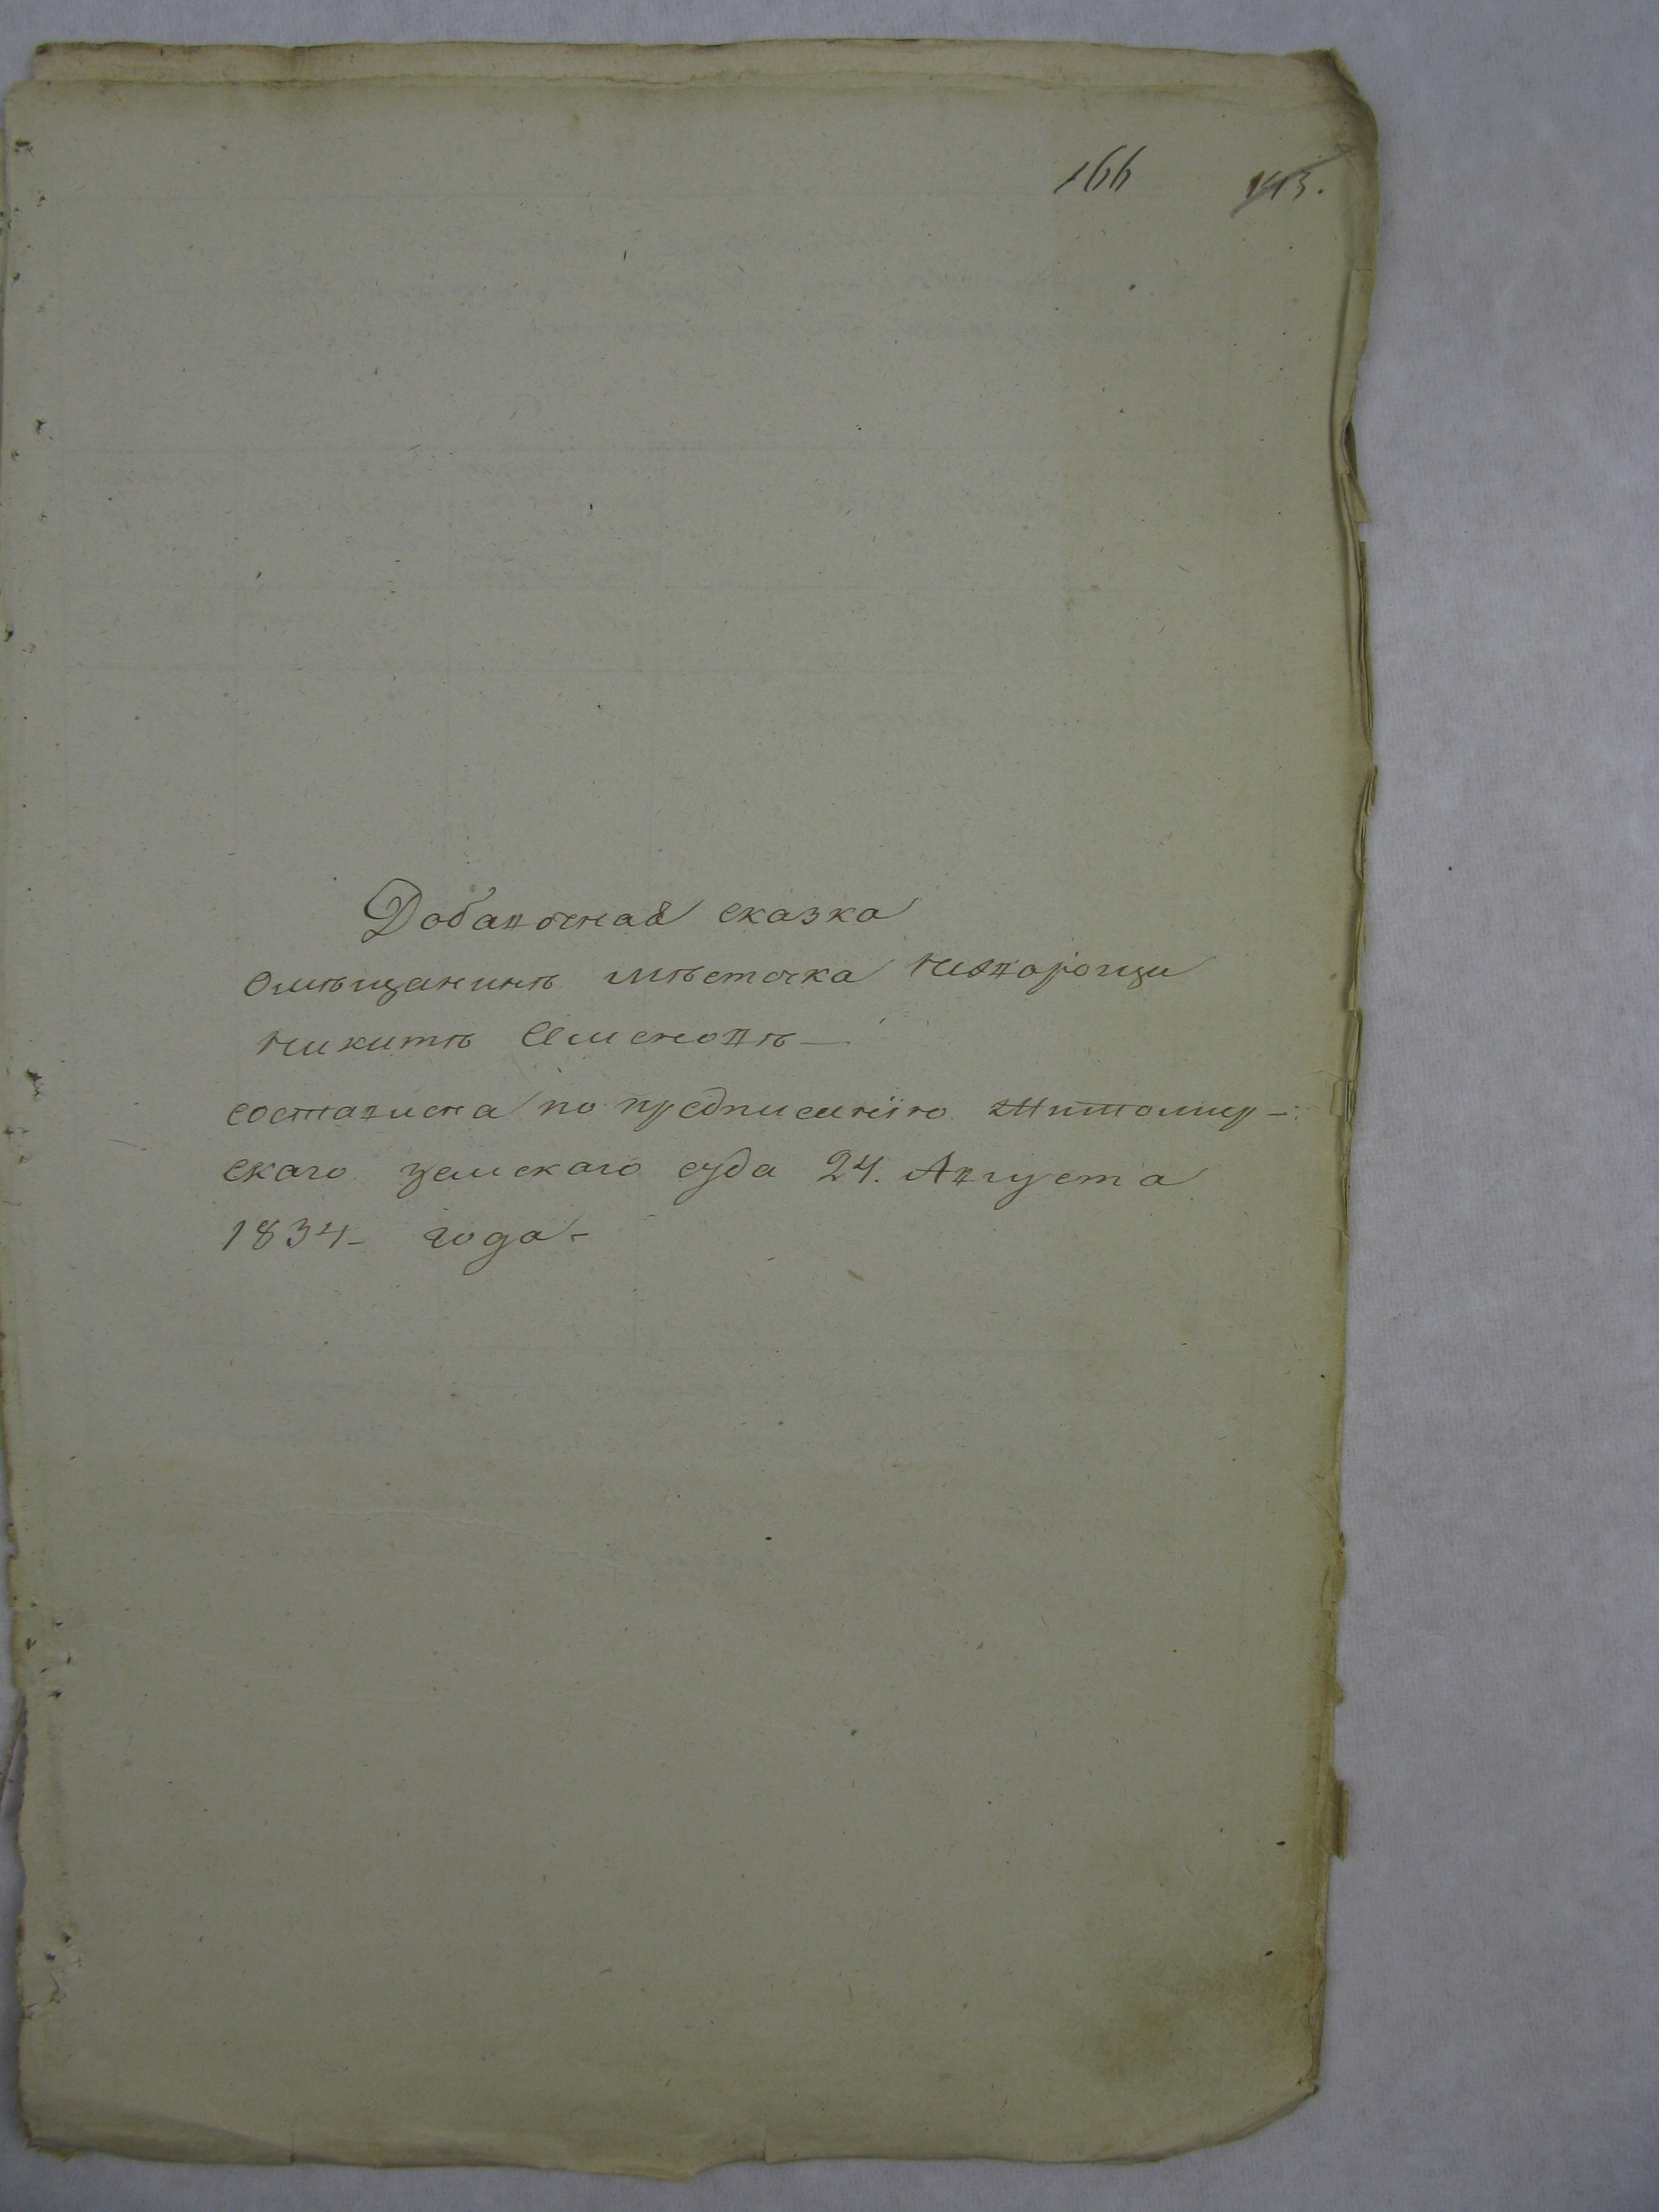 166 143.
Добавочная сказка
омѣщанинѣ мѣстечка Пивороци
Никитѣ Семеновѣ —
составлена по предписанїю Житомир-
скаго земскаго суда 24. Августа
1834- года-